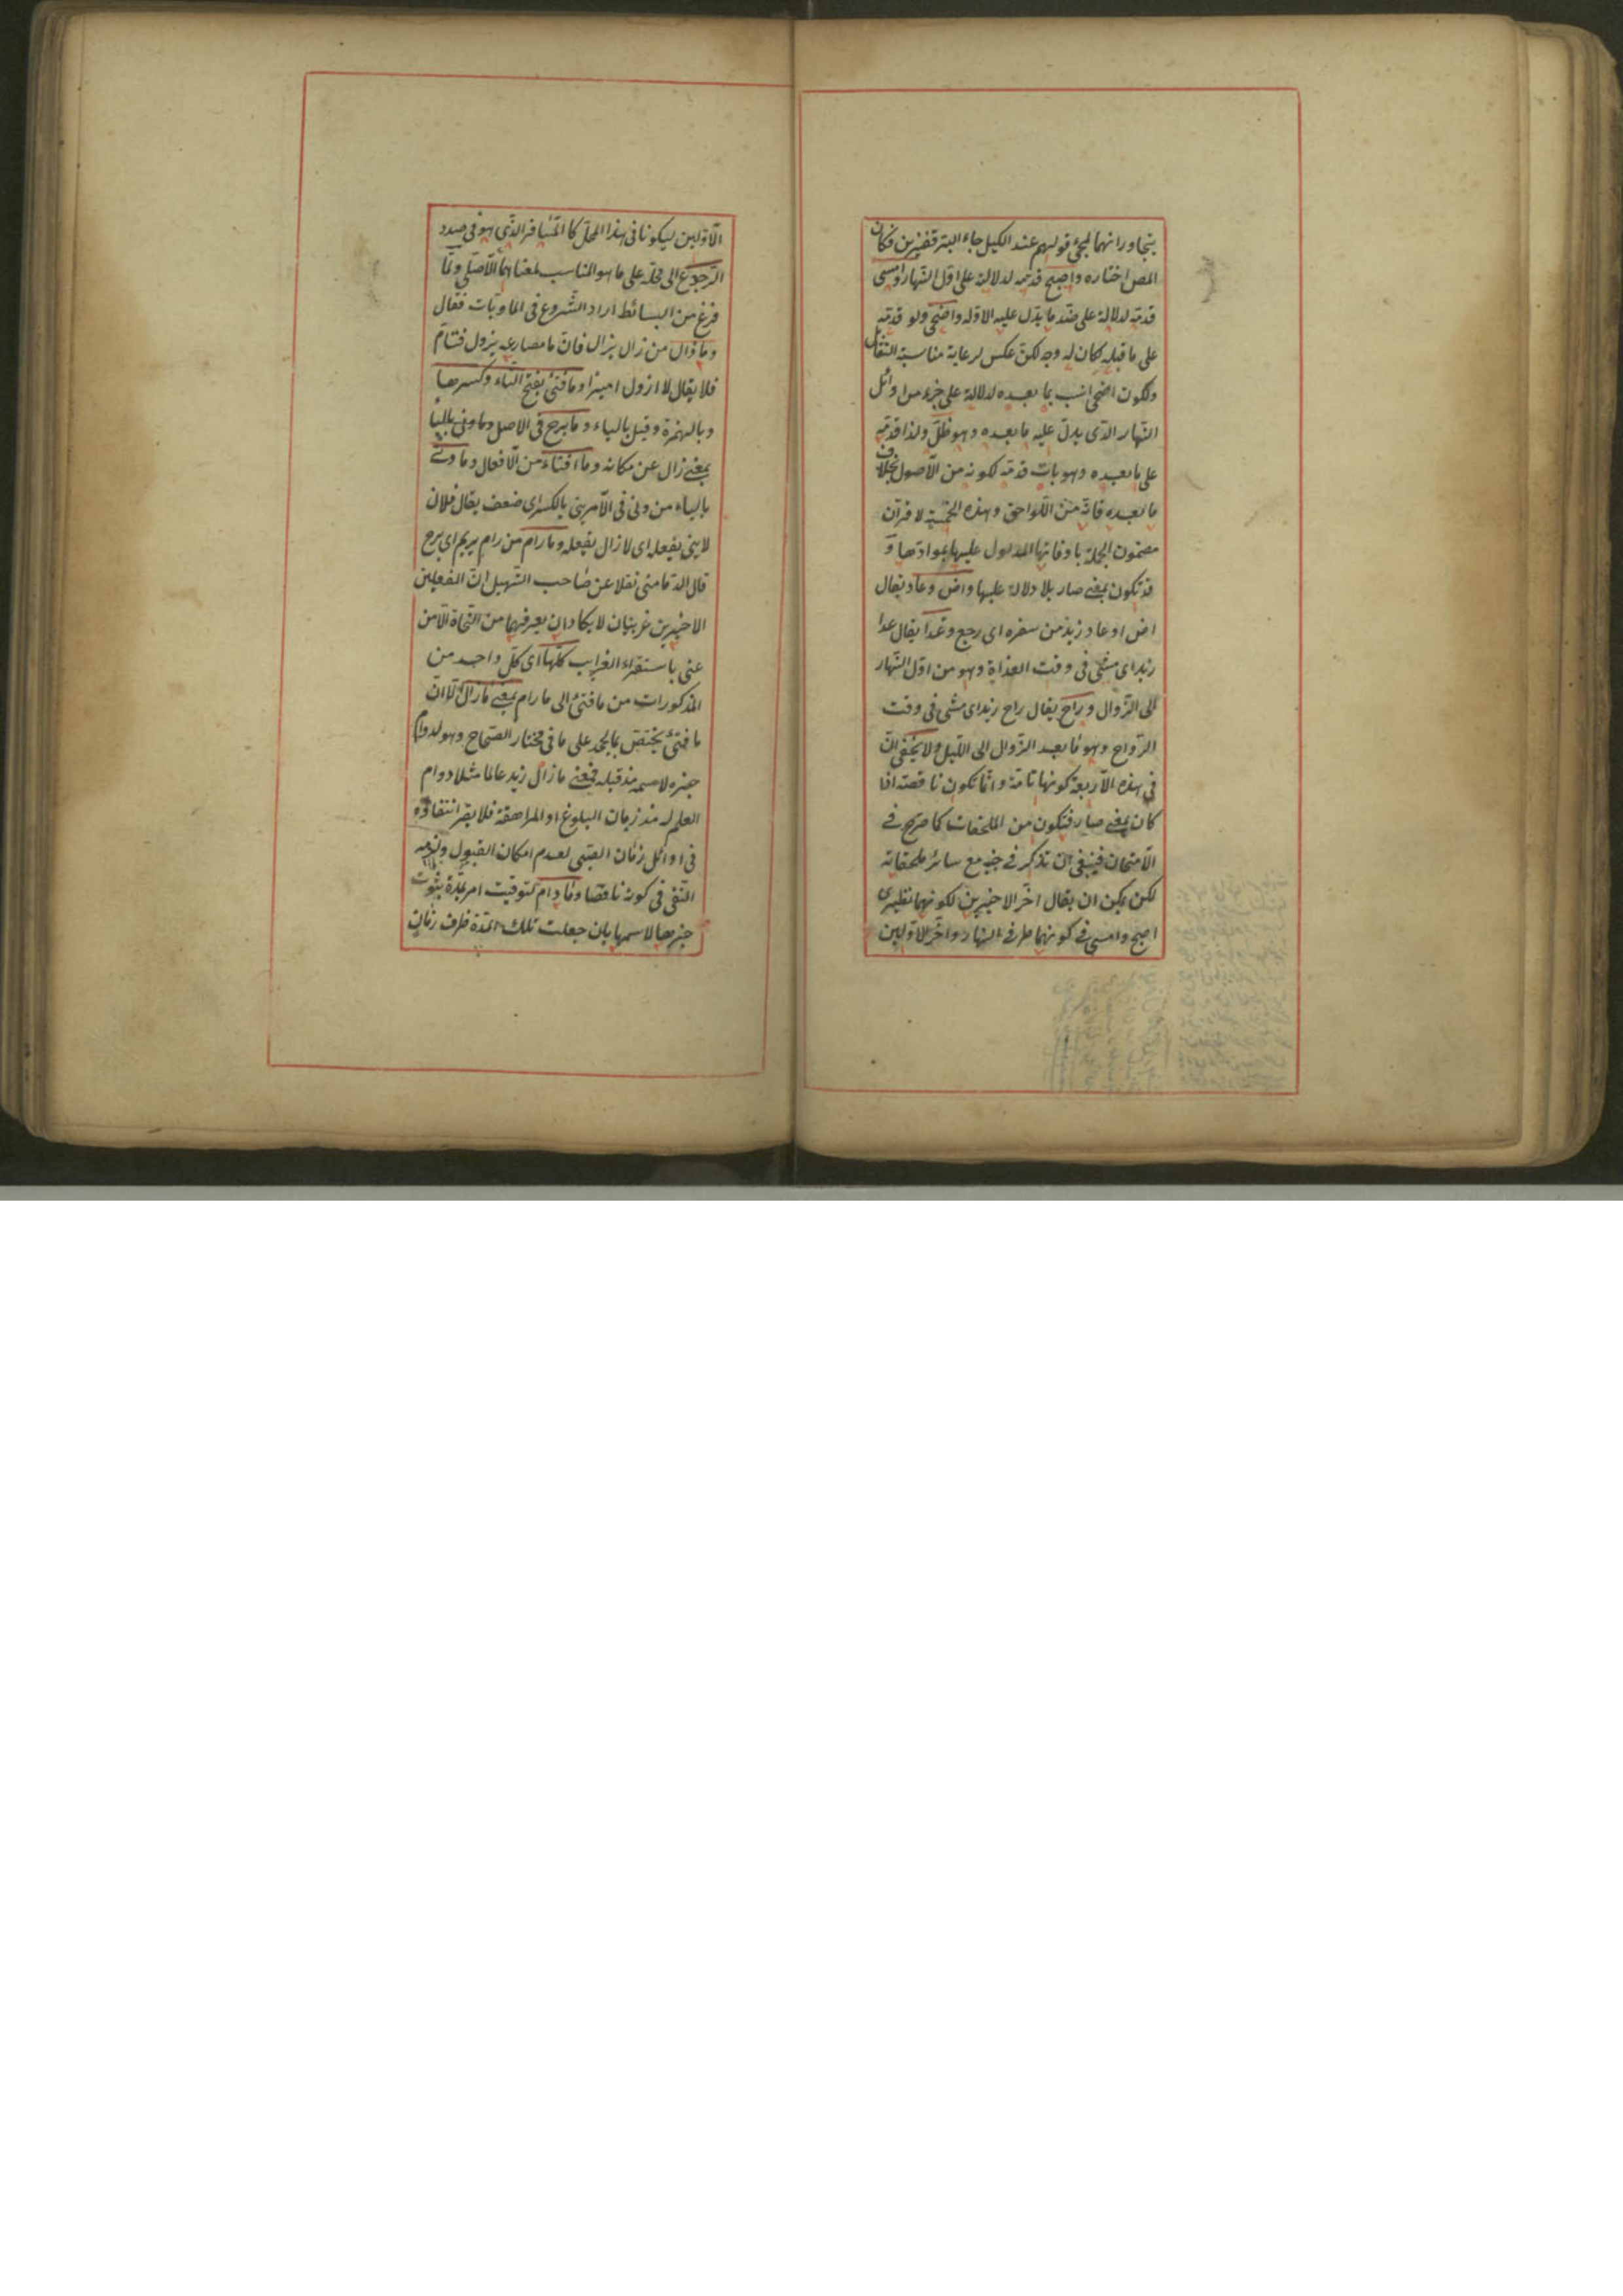 يتجاورانهما لمجئ قولهم عند الكيل جاء البر قفيزين فكان
المص اختاره واصبح قدمه لدلالته على اول النهار وامسى
قدمه لدلالة على ضد ما يدل عليه الاول واضحى ولو قدمه
على ما قبله لكان له وجه لكن عكس لرعاية مناسبة التقابل
ولكون اضحى انسب بما بعده لدلالة على جزء من اوائل
النهار الذى يدل عليه ما بعده وهو ظل ولذا قدمه
على ما بعده وهو بات قدمه لكونه من الاصول بخلاف
ما بعده فانه من اللواحق وهذه الخمسة لاقران
مضمون الجملة باوقاتها المدلول عليها بموادها و
قد تكون بمعنى صار بلا دلالة عليها واض وعاد يقال
اض او عاد زيد من سفره اى رجع وغدا يقال غدا
زيد اى مشى فى وقت الغداة وهو من اول النهار
الى الزوال وراح يقال راح زيد اى مشى فى وقت
الرواح وهو ما بعد الزوال الى الليل ولا يخفى ان
فى هذه الاربعة كونها تامة وانما تكون ناقصة اذا
كان بمعنى صار فتكون من الملحقات كما صرح فى
الامتحان فينبغى ان تذكر فى جنبه مع سائر ملحقاته
لكن يمكن ان يقال اخر الاخيرين لكونهما نظيرى
اصبح وامسى فى كونهما طرفى النهار واخر الاولين
الاولين ليكونا فى هذا المحل كالمسافر الذى هو فى صدد
الرجوع الى محله على ما هو المناسب لمعناهما الاصلى ولما
فرغ من البسائط اراد الشروع فى الماويات فقال
وما زال من زال يزال فان ما مضارعه يزول فتام
فلا يقال لا ازول اميرا وما فتئ بفتح التاء وكسرها
وبالهمزة وقيل بالياء وما برح فى الاصل وما ونى بالياء
بمعنى زال عن مكانه وما افتاء من الافعال وما ونى
بالياء من ونى فى الامر ينى بالكسر اى ضعف يقال فلان
لا ينى يفعله اى لا زال يفعله وما رام من رام يريم اى برح
قال الدمامينى نقلا عن صاحب التسهيل ان الفعلين
الاخيرين غريبان لا يكادان يعرفهما من النحاة الا من
عنى باستقراء الغرايب كلها اى كل واحد من
المذكورات من ما فتئ الى ما رام بمعنى ما زال الا ان
ما فتئ يختص بالجحد على ما فى مختار الصحاح وهو لدوام
خبره لاسمه مذ قبله فمعنى ما زال زيد عالما مثلا دوام
العلم له منذ زمان البلوغ او المراهقة فلا يضر انتفاؤه
فى اوائل زمان الصبى لعدم امكان القبول ويلزمه
النفى فى كونه ناقصا وما دام لتوقيت امر بمدة ثبوت
خبرها لاسمها بان جعلت تلك المدة ظرف زمان